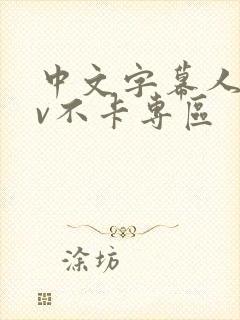 中文字幕人
v不卡专區
涂坊